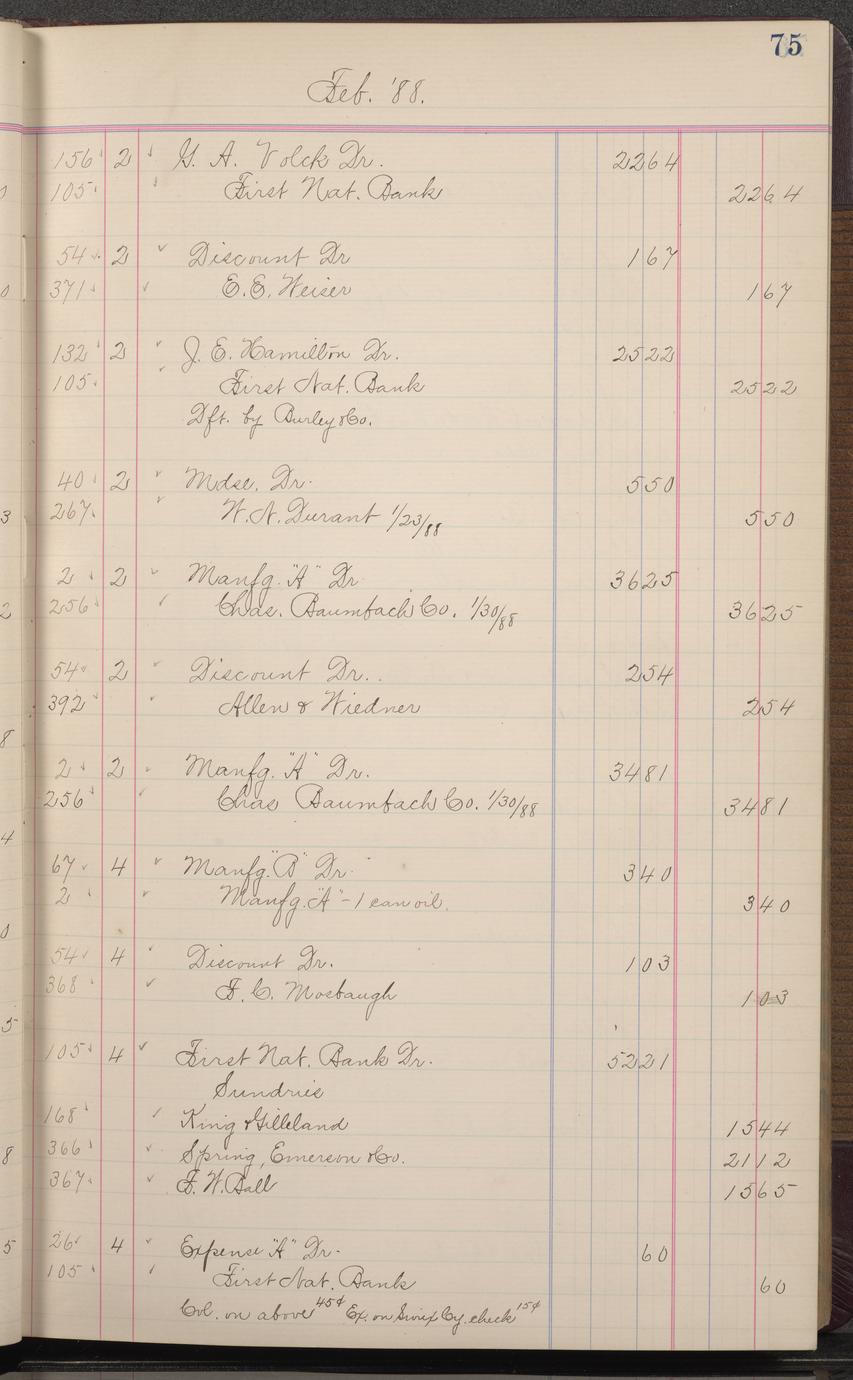 75
Feb. '88.
156 2 G. A. Volck Dr. 2264
105 First Nat. Bank 2264
54 2 Discount Dr 167
371 E. E. Weiser 167
132 2 J. E. Hamilton Dr. 2522
105 First Nat. Bank 2522
Dft. by Burley & Co.
40 2 Mdse. Dr. 550
267 W. N. Durant 1/23/88 550
2 2 Manfg. "A" Dr 3625
256 Chas. Baumbach Co. 1/30/88 3625
54 2 Discount Dr. 254
392 Allen & Wiedner 254
2 2 Manfg. "A" Dr. 3481
256 Chas Baumbach Co. 1/30/88 3481
67 4 Manfg. "B" Dr. 340
2 Manfg. "A" - 1 can oil. 340
54 4 Discount Dr. 103
368 F. C. Mosbaugh 103
105 4 First Nat. Bank Dr. 5221
Sundries
168 King & Gilleland 1544
366 Spring, Emerson & Co. 2112
367 F. W. Ball 1565
26 4 Expense "A" Dr. 60
105 First Nat. Bank 60
Col. on above 45¢ Ex. on Sioux Cy. check 15¢
0
0
3
2
8
4
0
5
8
5